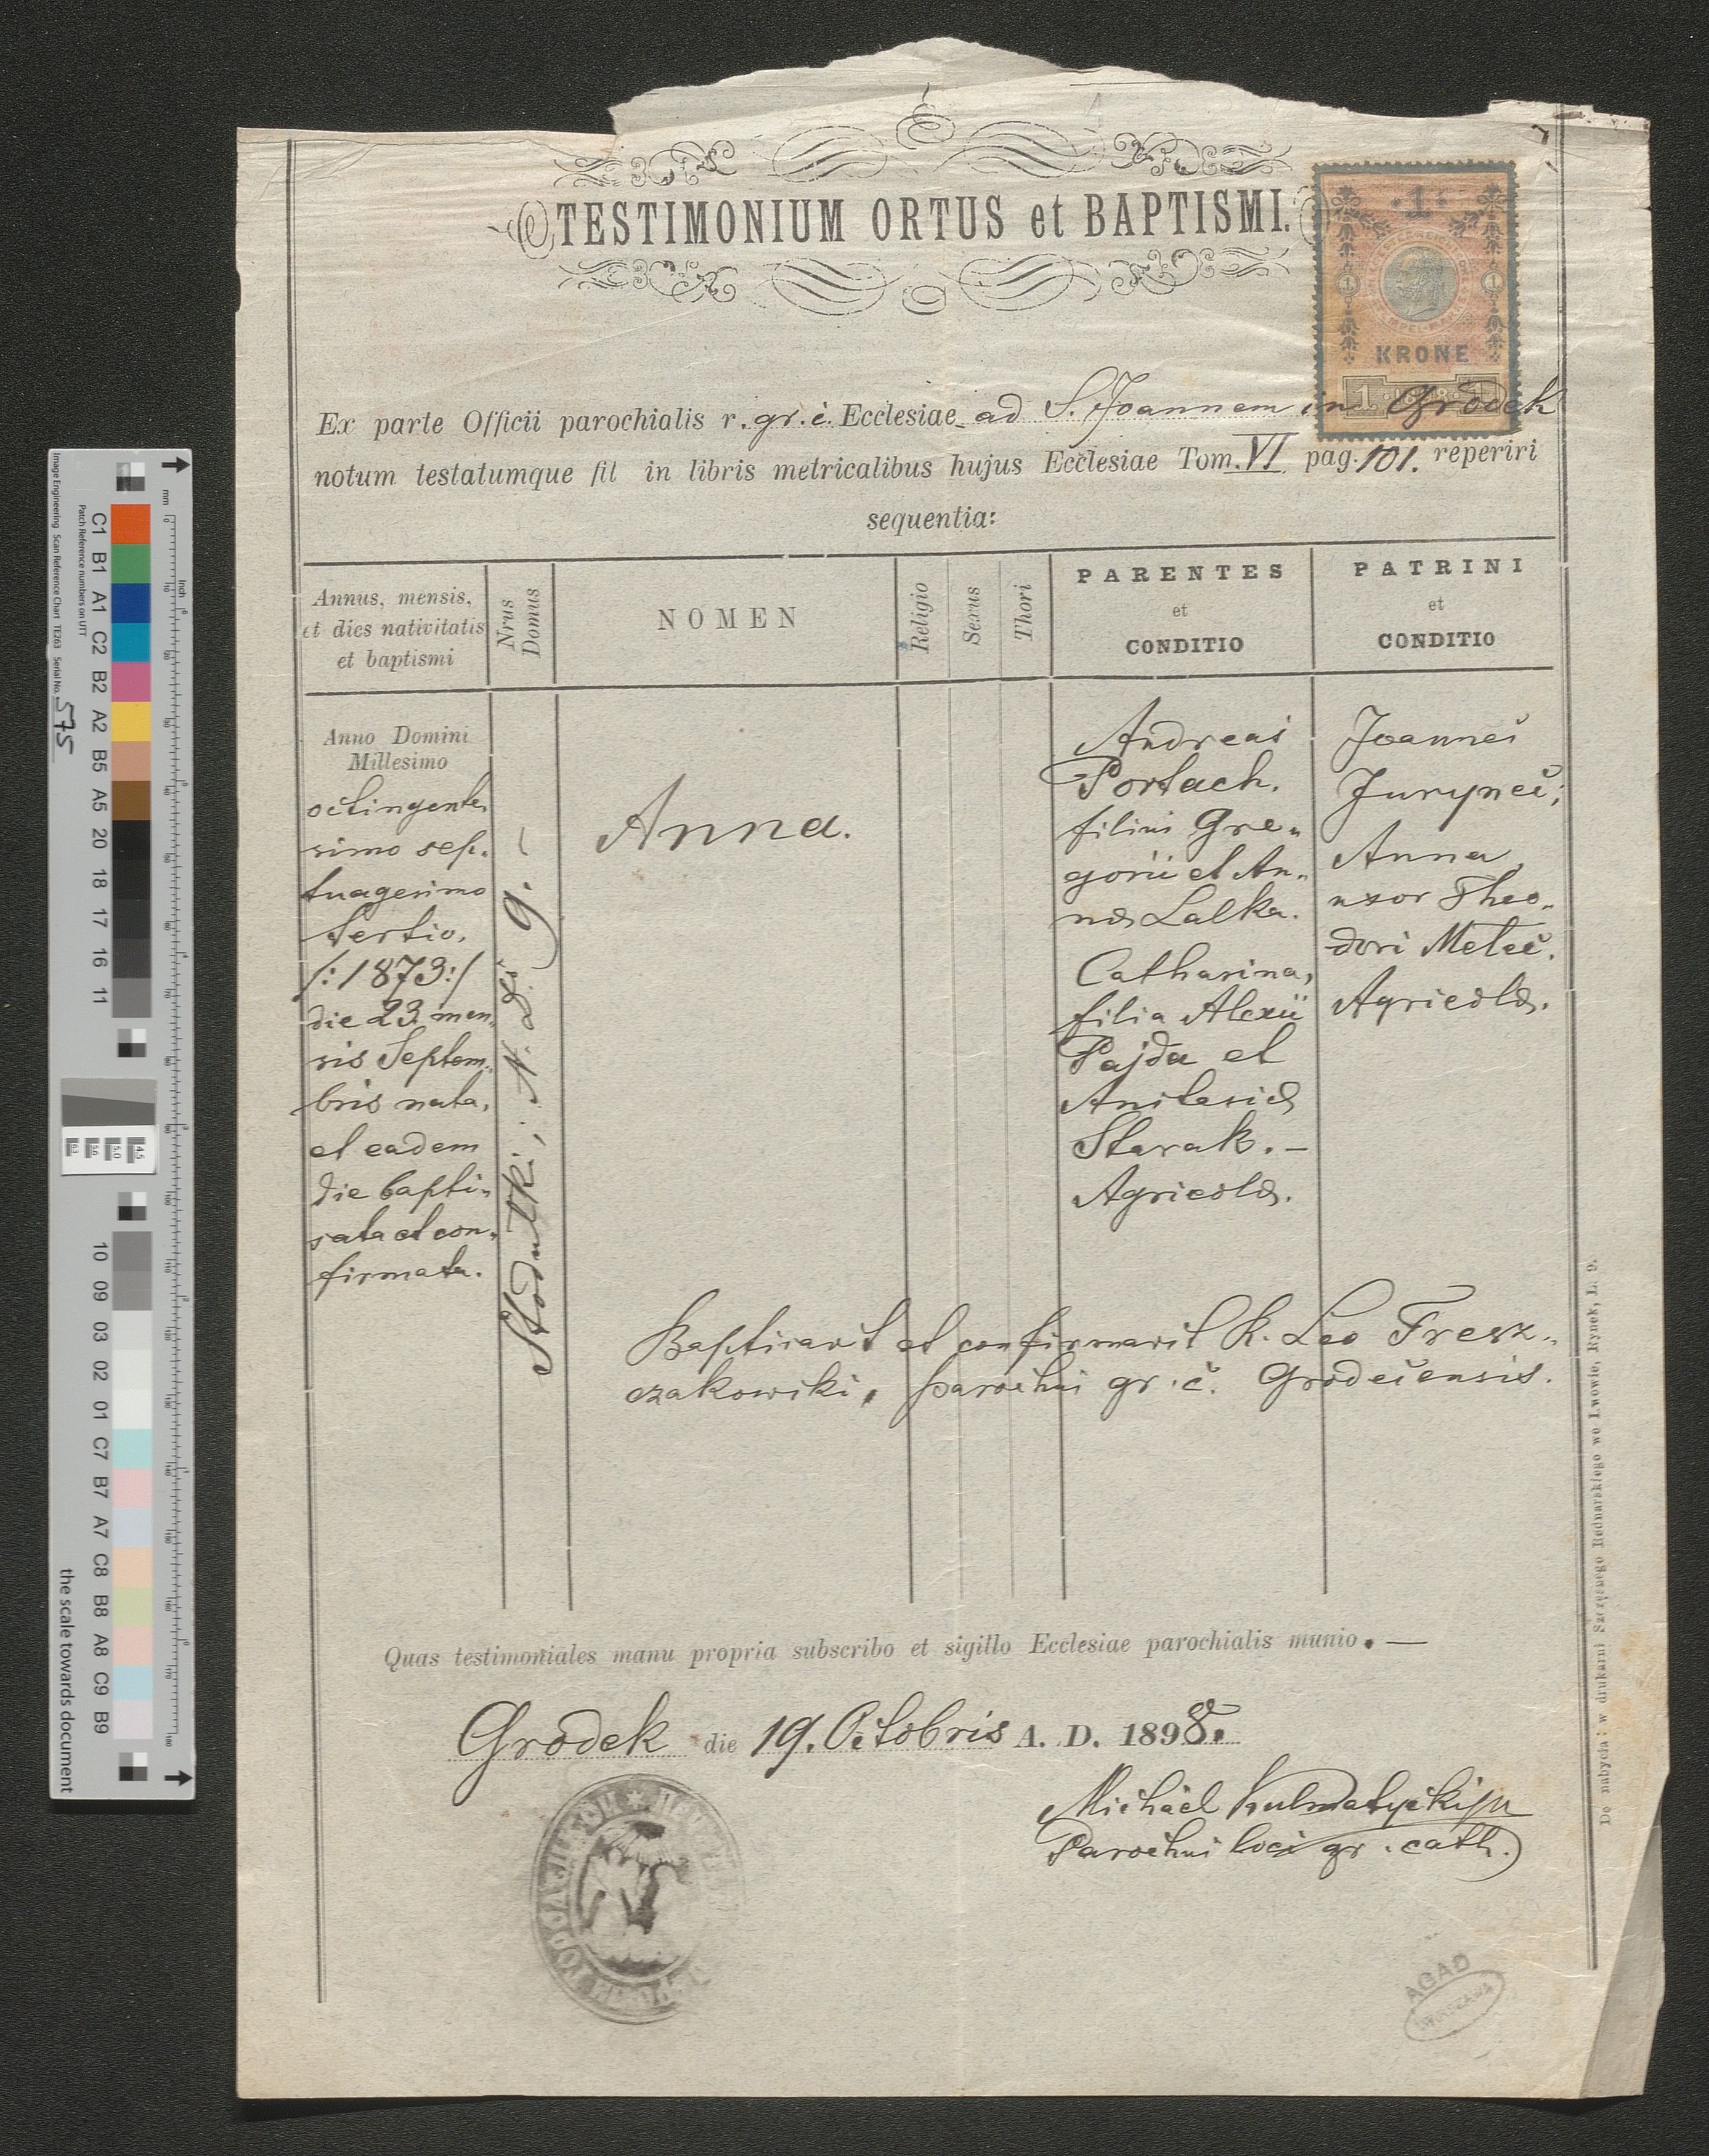 TESTIMONIUM ORTUS et BAPTISMI.
1
KRONE
1 1898 1
Ex parte Officii parochialis r. gr. c. Ecclesiae ad S. Joannem in Grodek
notum testatumque fit in libris metricalibus hujus Ecclesiae Tom. VI pag. 101. reperiri
sequentia:
Annus, mensis,
et dies nativitatis
et baptismi
Nrus
Domus
NOMEN
Religio
Sexus
Thori
PARENTES
et
CONDITIO
PATRINI
et
CONDITIO
Anno Domini
Millesimo
octingente„
simo sep„
tuagesimo
tertio.
/:1873:/
die 23 men„
sis Septem„
bris nata,
et eadem
die bapti„
sata et con„
firmata.
Stodułki; N. d. 9. –
Anna.
Andreas
Portach.
filius Gre„
gorii et An„
næ Lalka.
Catharina,
filia Alexii
Pajda et
Anastasiæ
Starak. –
Agricolæ.
Joannes
Jurynec;
Anna,
uxor Theo„
dori Metec.
Agricolæ.
Baptisavit et confirmavit R. Leo Tresz„
czakowski, parochus gr. c. Grodecensis.
Quas testimoniales manu propria subscribo et sigillo Ecclesiae parochialis munio. —
Grodek die 19. Octobris A. D. 1898.
Michaël Kulmatycki
Parochus loci gr. cath.
AGAD
WARSZAWA
Do nabycia: w drukarni Szczęsnego Bednarskiego we Lwowie, Rynek, L. 9.
Image Engineering Scan Reference Chart TE263 Serial No. 575
Patch Reference numbers on UTT
C1 B1 A1 C2 B2 A2 B5 A5 20 18 17 16 11
10 09 03 02 01 C7 B7 A7 C8 B8 A8 C9 B9
mm
inch
the scale towards document